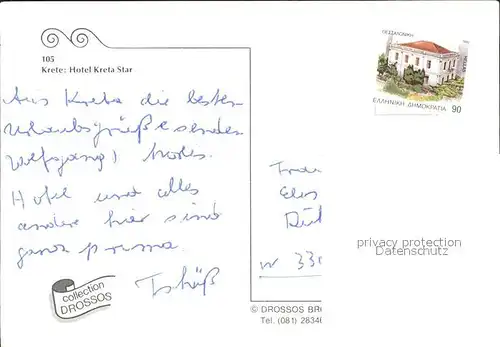 105
Krete: Hotel Kreta Star
Aus Kreta die besten
Urlaubsgrüße sendet
Wolfgang
Hotel und alles
andere hier sind
ganz prima.
Tschüß
collection
DROSSOS
ΘΕΣΣΑΛΟΝΙΚΗ
HELLAS
ΕΛΛΗΝΙΚΗ ΔΗΜΟΚΡΑΤΙΑ 90
Frau
W 330
privacy protection
Datenschutz
© DROSSOS BRO
Tel. (081) 28340